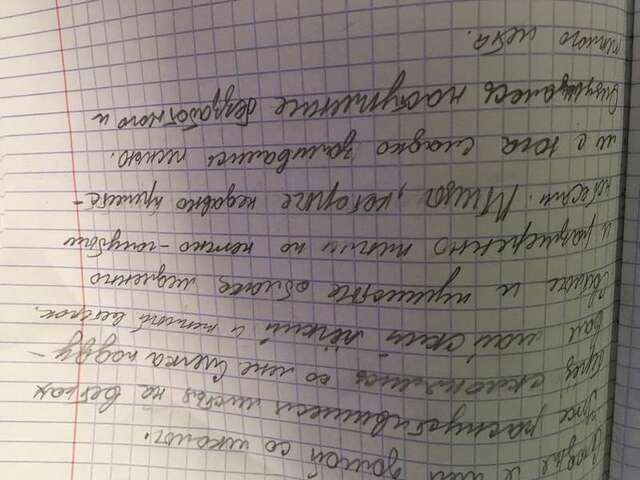 Сегодня я шёл домой со школы.
Уже распустившиеся листья на ветрах
берёз склонялись ко мне. Слегка подду-
вал майский лёгкий и тёплый ветерок.
Светлые и пушистые облака медленно
и размеренно плыли по нежно-голубым
небесам. Птицы, которые недавно прилете-
ли с юга сладко заливались песнью.
Ощущалось наступление беззаботного и
теплого лета.